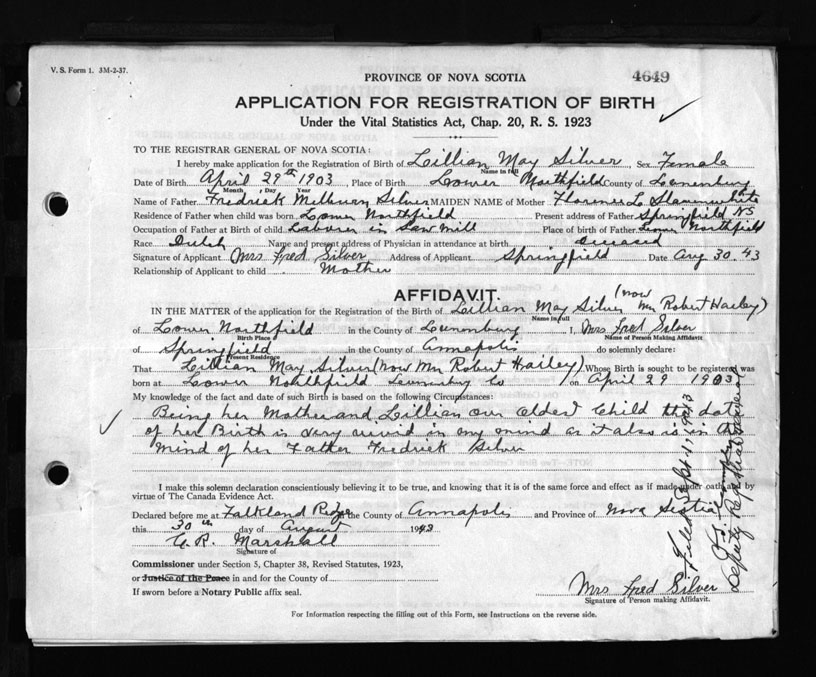 V. S. Form 1. 3M-2-37.
PROVINCE OF NOVA SCOTIA
4649
APPLICATION FOR REGISTRATION OF BIRTH
Under the Vital Statistics Act, Chap. 20, R. S. 1923
TO THE REGISTRAR GENERAL OF NOVA SCOTIA:
I hereby make application for the Registration of Birth of Lillian May Silver, Sex Female
Name in full
Date of Birth April 29th 1903, Place of Birth Lower Northfield County of Lunenburg
Month, Day Year
Name of Father Fredrick Silver MAIDEN NAME of Mother Florence L.
Residence of Father when child was born Lower Northfield Present address of Father Springfield NS
Occupation of Father at Birth of child Laborer in Saw Mill Place of birth of Father Lower Northfield
Race Dutch Name and present address of Physician in attendance at birth deceased
Signature of Applicant Mrs Fred Silver Address of Applicant Springfield Date Aug 30. 43
Relationship of Applicant to child Mother
AFFIDAVIT.
IN THE MATTER of the application for the Registration of the Birth of Lillian May Silver (now Mrs Robert Hailey)
Name in full
of Lower Northfield in the County of Lunenburg I, Mrs Fred Silver
Birth Place Name of Person Making Affidavit
of Springfield in the County of Annapolis do solemnly declare:
Present Residence
That Lillian May Silver (now Mrs Robert Hailey) Whose Birth is sought to be registered was
born at Lower Northfield Lunenburg Co on April 29 1903
My knowledge of the fact and date of such Birth is based on the following Circumstances:
Being her Mother and Lillian our oldest child the date
of her Birth is very in my mind as it also is in the
mind of her Father Fredrick Silver
I make this solemn declaration conscientiously believing it to be true, and knowing that it is of the same force and effect as if made under oath and by
virtue of The Canada Evidence Act.
Declared before me at Falkland Ridge in the County of Annapolis and Province of Nova Scotia
this 30th day of August 1943
Marshall
Signature of
Commissioner under Section 5, Chapter 38, Revised Statutes, 1923,
or Justice of the Peace in and for the County of
If sworn before a Notary Public affix seal.
Mrs Fred Silver
Signature of Person making Affidavit.
For Information respecting the filling out of this Form, see Instructions on the reverse side.
Filed Sept
Deputy Registrar General